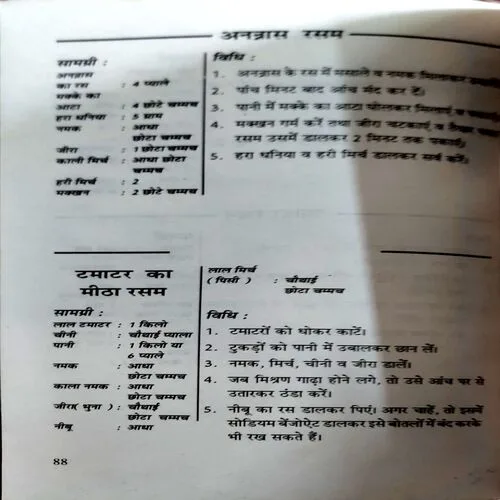 अनन्नास रसम
सामग्री :
अनन्नास
का रस : 4 प्याले
मक्के का
आटा : 4 छोटे चम्मच
हरा धनिया : 5 ग्राम
नमक : आधा
छोटा चम्मच
जीरा : 1 छोटा चम्मच
काली मिर्च : आधा छोटा
चम्मच
हरी मिर्च : 2
मक्खन : 2 छोटे चम्मच
विधि :
1. अनन्नास के रस में मसाले व नमक मिलाकर
2. पाँच मिनट बाद आंच मंद कर दें।
3. पानी में मक्के का आटा घोलकर मिलाएं व
4. मक्खन गर्म करें तथा जीरा चटकाएं व तैयार
रसम उसमें डालकर 2 मिनट तक पकाएं।
5. हरा धनिया व हरी मिर्च डालकर सर्व करें।
टमाटर का
मीठा रसम
सामग्री :
लाल टमाटर : 1 किलो
चीनी : चौथाई प्याला
पानी : 1 किलो या
6 प्याले
नमक : आधा
छोटा चम्मच
काला नमक : आधा
छोटा चम्मच
जीरा( भुना ) : चौथाई
छोटा चम्मच
नीबू : आधा
लाल मिर्च
( पिसी ) : चौथाई
छोटा चम्मच
विधि :
1. टमाटरों को धोकर काटें।
2. टुकड़ों को पानी में उबालकर छान लें।
3. नमक, मिर्च, चीनी व जीरा डालें।
4. जब मिश्रण गाढ़ा होने लगे, तो उसे आंच पर से
उतारकर ठंडा करें।
5. नीबू का रस डालकर पिएं। अगर चाहें, तो इसमें
सोडियम बेंजोऐट डालकर इसे बोतलों में बंद करके
भी रख सकते हैं।
88